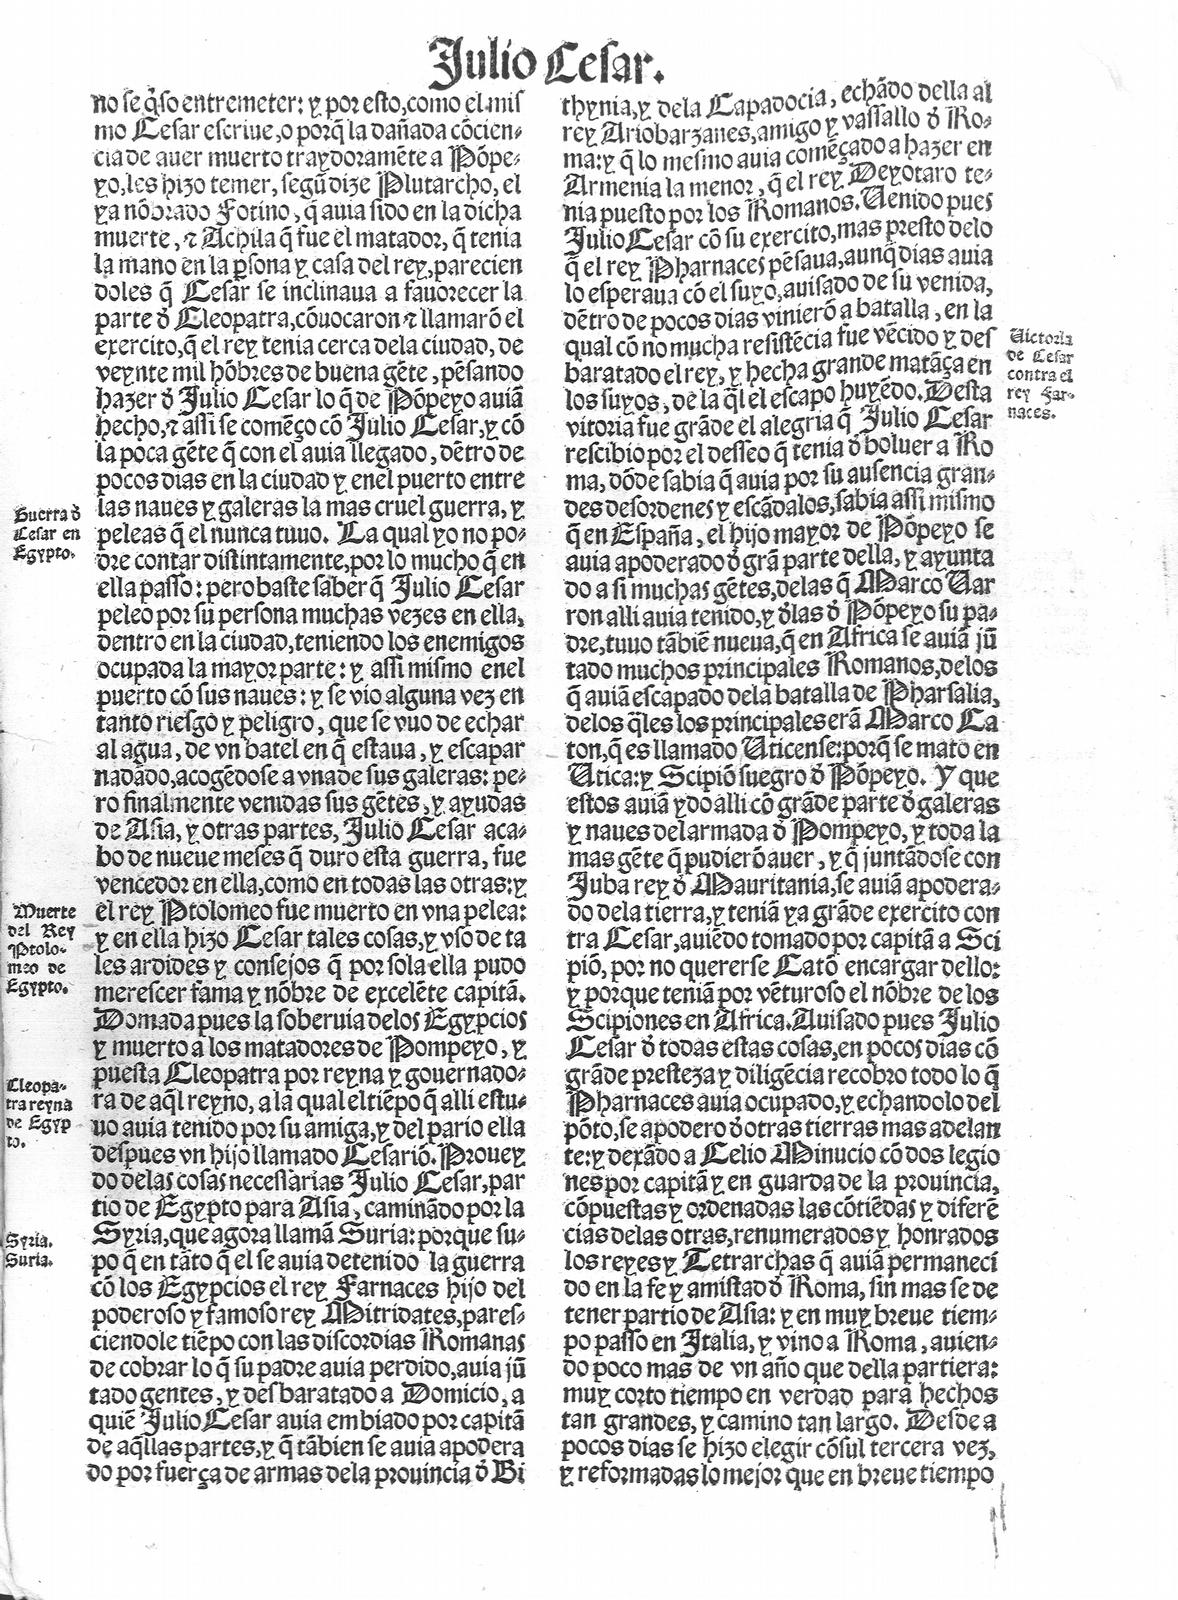 Julio Cesar.
no se q̃so entremeter: y por esto, como el mis
mo Cesar escriue, o porq̃ la dañada cõcien-
cia de auer muerto traydoramẽte a Põpe-
yo, les hizo temer, segũ dize Plutarcho, el
ya nõbrado Fotino, q̃ auia sido en la dicha
muerte, ⁊ Achila q̃ fue el matador, q̃ tenia
la mano en la ꝑsona y casa del rey, parecien
doles q̃ Cesar se inclinaua a fauorecer la
parte đ Cleopatra, cõuocaron ⁊ llamarõ el
exercito, q̃ el rey tenia cerca dela ciudad, de
veynte mil hõbres de buena gẽte, pẽsando
hazer đ Julio Cesar lo q̃ de Põpeyo auiã
hecho, ⁊ assi se comẽço cõ Julio Cesar, y cõ
la poca gẽte q̃ con el auia llegado, dẽtro de
pocos dias en la ciudad y enel puerto entre
las naues y galeras la mas cruel guerra, y
peleas q̃ el nunca tuuo. La qual yo no po-
dre contar distintamente, por lo mucho q̃ en
ella passo: pero baste saber q̃ Julio Cesar
peleo por su persona muchas vezes en ella,
dentro en la ciudad, teniendo los enemigos
ocupada la mayor parte: y assi mismo enel
puerto cõ sus naues: y se vio alguna vez en
tanto riesgo y peligro, que se vuo de echar
al agua, de vn batel en q̃ estaua, y escapar
nadãdo, acogẽdose a vna de sus galeras: pe-
ro finalmente venidas sus gẽtes, y ayudas
de Asia, y otras partes, Julio Cesar aca-
bo de nueue meses q̃ duro esta guerra, fue
vencedor en ella, como en todas las otras: y
el rey Ptolomeo fue muerto en vna pelea:
y en ella hizo Cesar tales cosas, y vso de ta
les ardides y consejos q̃ por sola ella pudo
merescer fama y nõbre de excelẽte capitã.
Domada pues la soberuia delos Egypcios
y muerto a los matadores de Pompeyo, y
puesta Cleopatra por reyna y gouernado-
ra de aq̃l reyno, a la qual el tiẽpo q̃ alli estu-
uo auia tenido por su amiga, y del pario ella
despues vn hijo llamado Cesariõ. Prouey
do delas cosas necessarias Julio Cesar, par
tio de Egypto para Asia, caminãdo por la
Syria, que agora llamã Suria: porque su-
po q̃ en tãto q̃ el se auia detenido la guerra
cõ los Egypcios el rey Farnaces hijo del
poderoso y famoso rey Mitridates, pares-
ciendole tiẽpo con las discordias Romanas
de cobrar lo q̃ su padre auia perdido, auia jũ
tado gentes, y desbaratado a Domicio, a
quiẽ Julio Cesar auia embiado por capitã
de aq̃llas partes, y q̃ tãbien se auia apodera
do por fuerça de armas dela prouincia đ Bi
Guerra đ
Cesar en
Egypto.
Muerte
del Rey
Ptolo-
meo de
Egypto.
Cleopa-
tra reyna
de Egyp
to.
Syria.
Suria.
thynia, y dela Capadocia, echãdo della al
rey Ariobarzanes, amigo y vassallo đ Ro-
ma: y q̃ lo mesmo auia comẽçado a hazer en
Armenia la menor, q̃ el rey Deyotaro te-
nia puesto por los Romanos. Uenido pues
Julio Cesar cõ su exercito, mas presto delo
q̃ el rey Pharnaces pẽsaua, aunq̃ dias auia
lo esperaua cõ el suyo, auisado de su venida,
dẽtro de pocos dias vinierõ a batalla, en la
qual cõ no mucha resistẽcia fue vẽcido y des
baratado el rey, y hecha grande matãça en
los suyos, de la q̃l el escapo huyẽdo. Desta
vitoria fue grãde el alegria q̃ Julio Cesar
rescibio por el desseo q̃ tenia đ boluer a Ro
ma, dõde sabia q̃ auia por su ausencia gran-
des desordenes y escãdalos, sabia assi mismo
q̃ en España, el hijo mayor de Põpeyo se
auia apoderado đ grã parte della, y ayunta
do a si muchas gẽtes, delas q̃ Marco Uar
ron alli auia tenido, y đlas đ Põpeyo su pa-
dre, tuuo tãbiẽ nueua, q̃ en Africa se auiã jũ
tado muchos principales Romanos, delos
q̃ auiã escapado dela batalla de Pharsalia,
delos q̃les los principales erã Marco Ca
ton, q̃ es llamado Uticense: porq̃ se mato en
Utica: y Scipiõ suegro đ Põpeyo. Y que
estos auiã ydo alli cõ grãde parte đ galeras
y naues del armada đ Pompeyo, y toda la
mas gẽte q̃ pudierõ auer, y q̃ juntãdose con
Juba rey đ Mauritania, se auiã apodera-
do dela tierra, y teniã ya grãde exercito con
tra Cesar, auiẽdo tomado por capitã a Sci
piõ, por no quererse Catõ encargar dello:
y porque teniã por vẽturoso el nõbre de los
Scipiones en Africa. Auisado pues Julio
Cesar đ todas estas cosas, en pocos dias cõ
grãde presteza y diligẽcia recobro todo lo q̃
Pharnaces auia ocupado, y echandolo del
põto, se apodero đ otras tierras mas adelan
te: y dexãdo a Celio Minucio cõ dos legio
nes por capitã y en guarda de la prouincia,
cõpuestas y ordenadas las cõtiẽdas y diferẽ
cias delas otras, renumerados y honrados
los reyes y Tetrarchas q̃ auiã permaneci
do en la fe y amistad đ Roma, sin mas se de
tener partio de Asia: y en muy breue tiem-
po passo en Italia, y vino a Roma, auien-
do poco mas de vn año que della partiera:
muy corto tiempo en verdad para hechos
tan grandes, y camino tan largo. Desde a
pocos dias se hizo elegir cõsul tercera vez,
y reformadas lo mejor que en breue tiempo
Uictoria
de Cesar
contra el
rey Far-
naces.